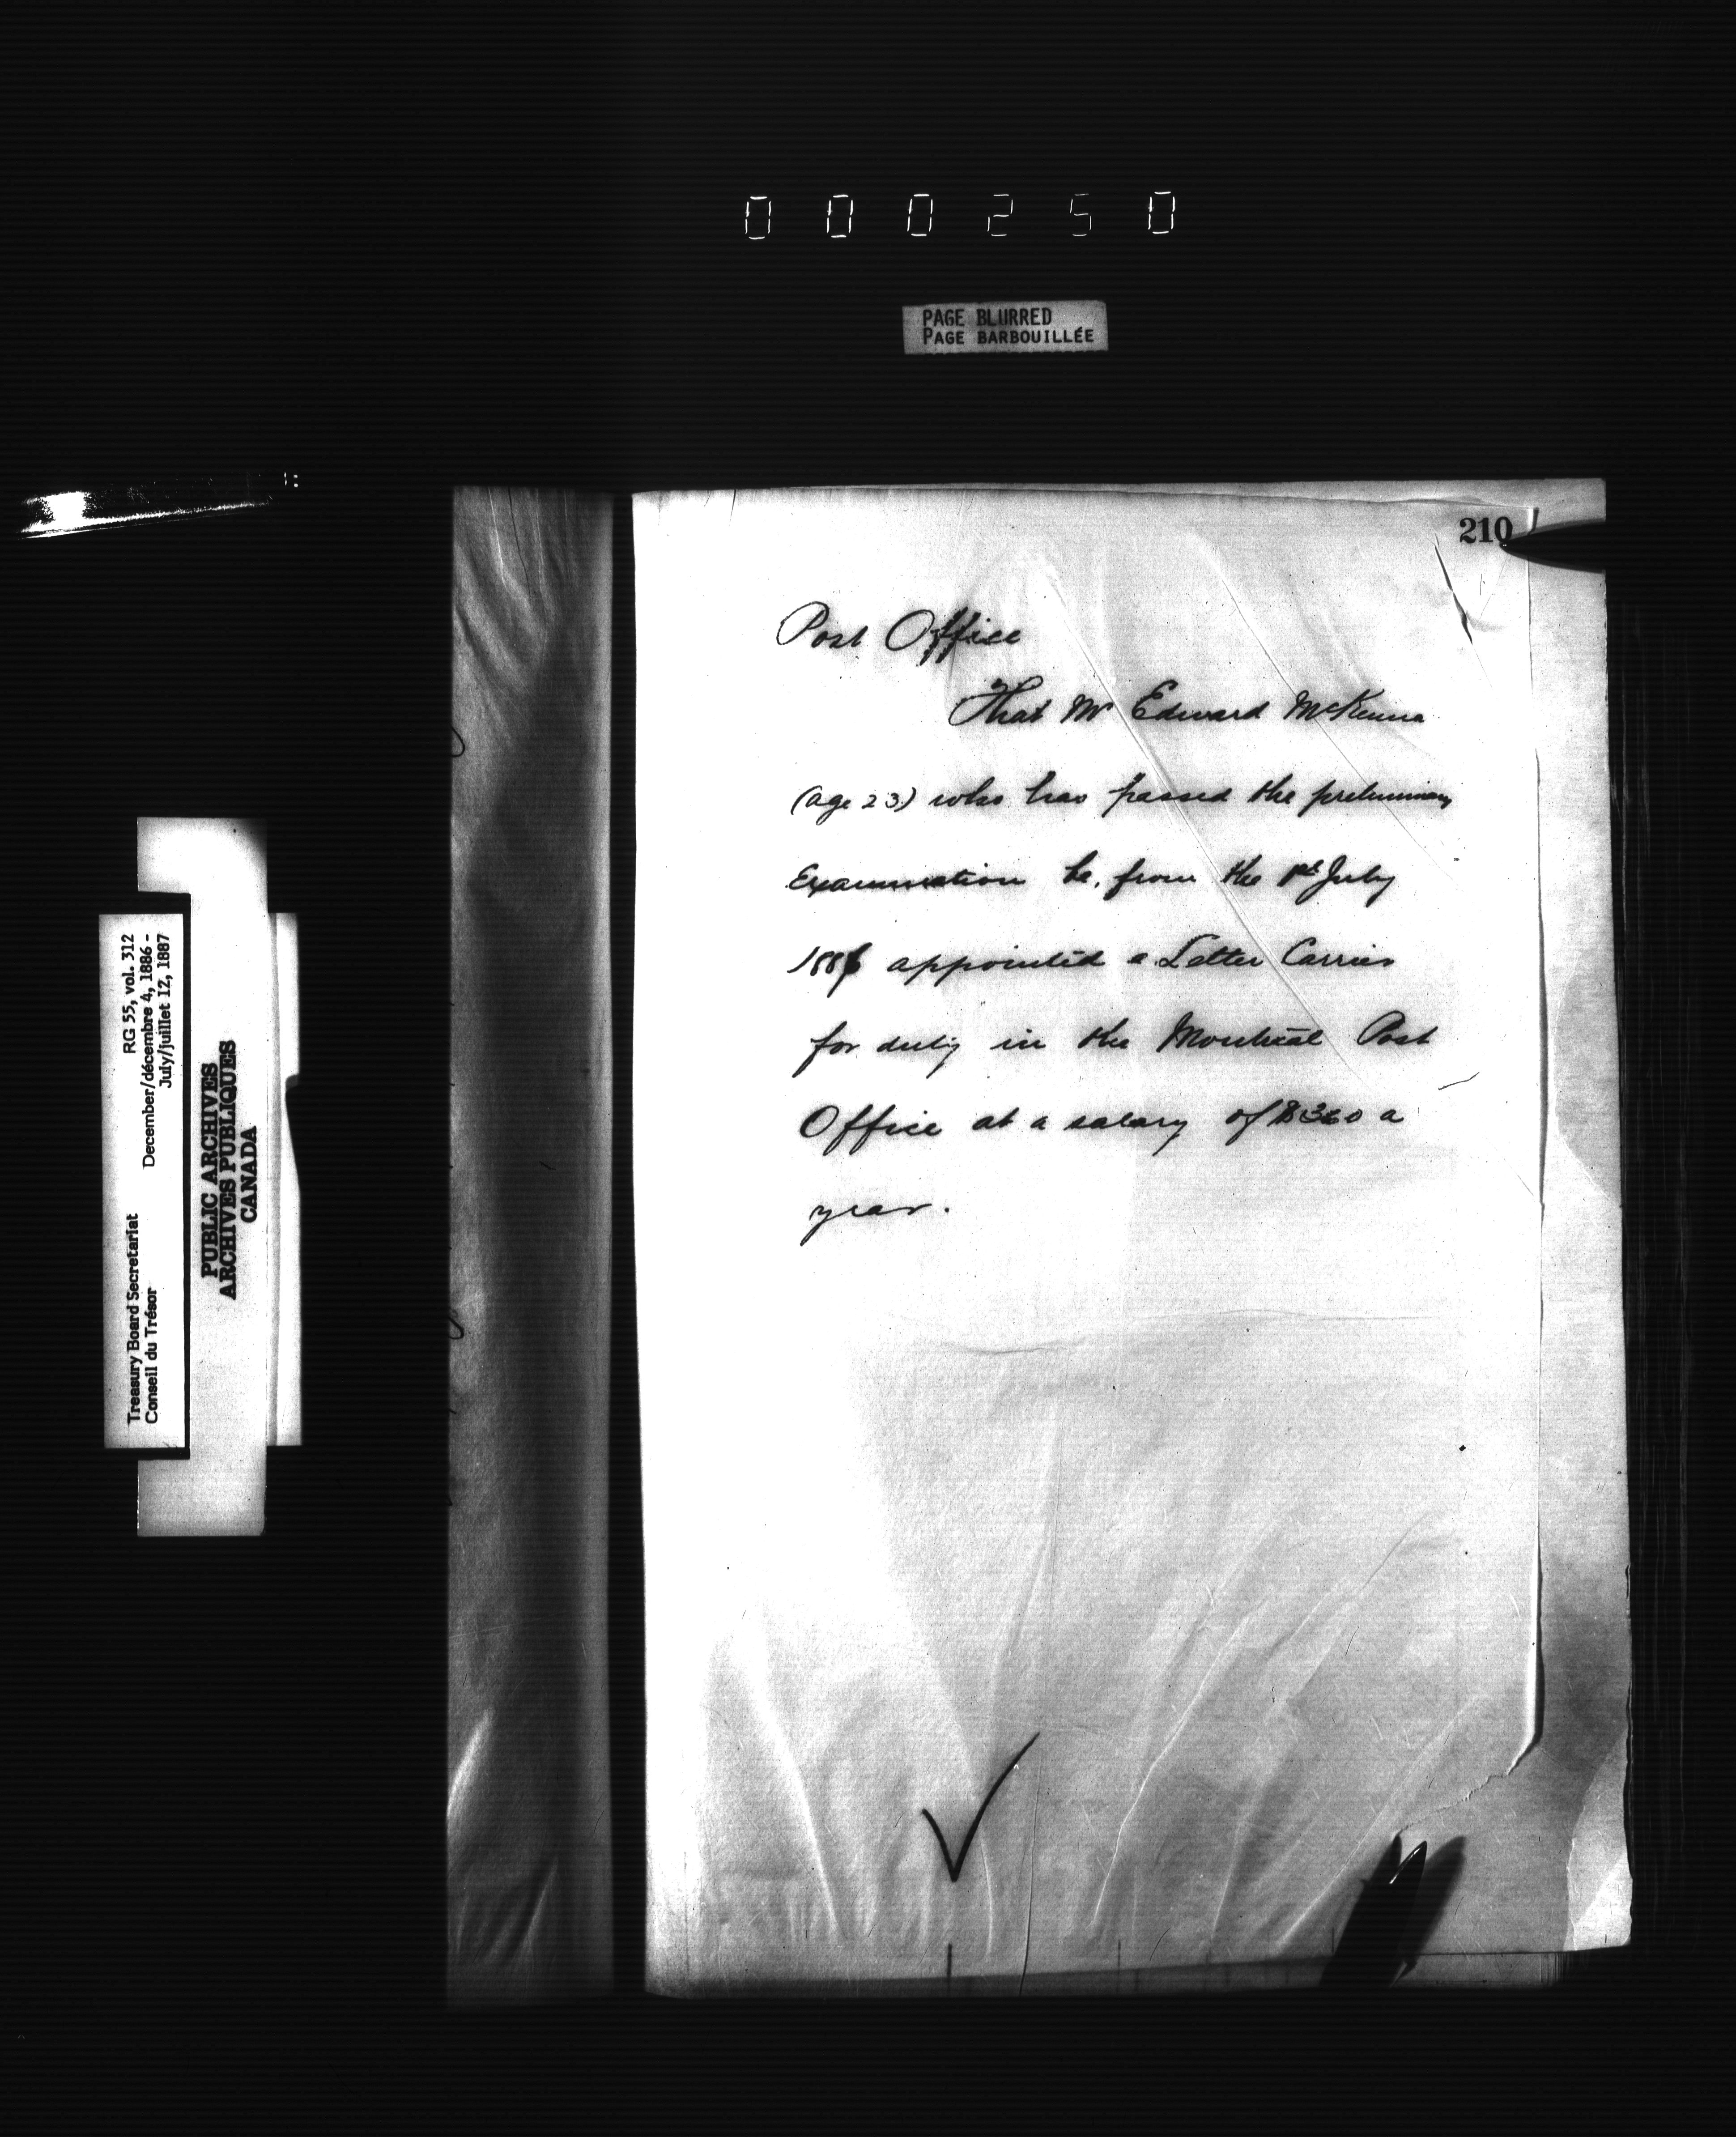 000250
PAGE BLURRED
PAGE BARBOUILLÉE
210
Post Office
That Mr Edward McKenna
(age 23) who has passed the preliminary
Examination be, from the 1st July
1886 appointed a Letter Carrier
for duty in the Montreal Post
Office at a salary of $360 a
year.
RG 55, vol. 312
December/décembre 4, 1886 -
July/juillet 12, 1887
Treasury Board Secretariat
Conseil du Trésor
PUBLIC ARCHIVES
ARCHIVES PUBLIQUES
CANADA